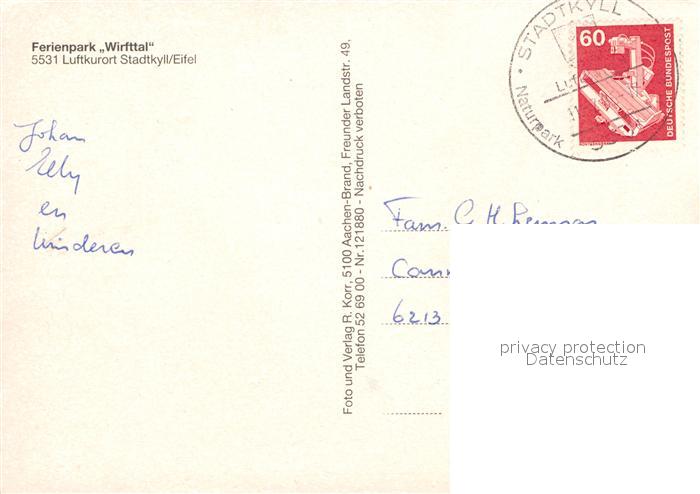 Ferienpark „Wirfttal"
5531 Luftkurort Stadtkyll/Eifel
Johan
Elly
en
kinderen
Foto und Verlag R. Korr, 5100 Aachen-Brand, Freunder Landstr. 49,
Telefon 52 69 00 - Nr.121880 - Nachdruck verboten
STADTKYLL
Naturpark
60
DEUTSCHE BUNDESPOST
Fam. C. H.
6213
privacy protection
Datenschutz